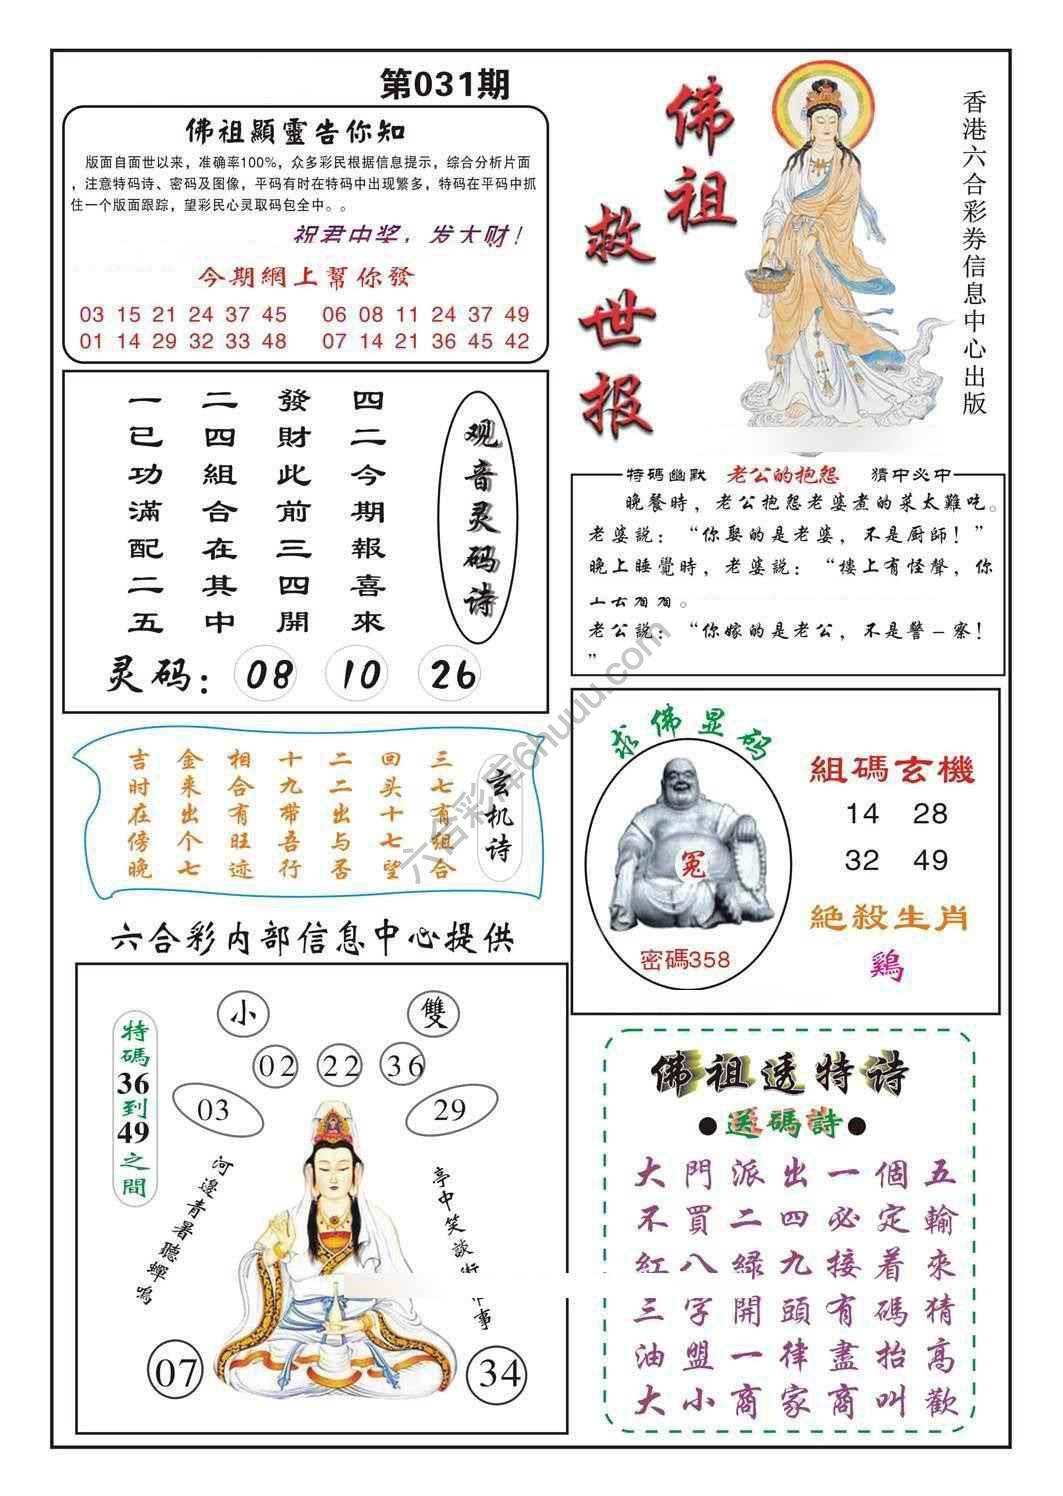 第031期
佛祖顯靈告你知
版面自面世以来，准确率100%，众多彩民根据信息提示，综合分析片面
，注意特码诗、密码及图像，平码有时在特码中出现繁多，特码在平码中抓
住一个版面跟踪，望彩民心灵取码包全中。。
祝君中奖，发大财！
今期網上幫你發
03 15 21 24 37 45 06 08 11 24 37 49
01 14 29 32 33 48 07 14 21 36 45 42
佛祖
救世报
香港六合彩券信息中心出版
观音灵码诗
四二今期報喜來
發財此前三四開
二四組合在其中
一已功滿配二五
灵码：08 10 26
特碼幽默 老公的抱怨 猜中必中
晚餐時，老公抱怨老婆煮的菜太難吃。
老婆説：“你娶的是老婆，不是厨師！”
晚上睡覺時，老婆説：“樓上有怪聲，你
老公説：“你嫁的是老公，不是警－察！
”
玄机诗
三七有组合
回头十七望
二二出与否
十九带吾行
相合有旺迹
金来出个七
吉时在傍晚
求佛显码
冤
密碼358
組碼玄機
14 28
32 49
絶殺生肖
鷄
六合彩内部信息中心提供
小 雙
02 22 36
03 29
特碼36到49之間
河邊青暑聽蟬鳴
亭中笑談事
07 34
佛祖透特诗
●送碼詩●
大門派出一個五
不買二四必定輸
紅八緑九接着來
三字開頭有碼猜
油盟一律盡抬高
大小商家商叫歡
六合彩库6huuu.com